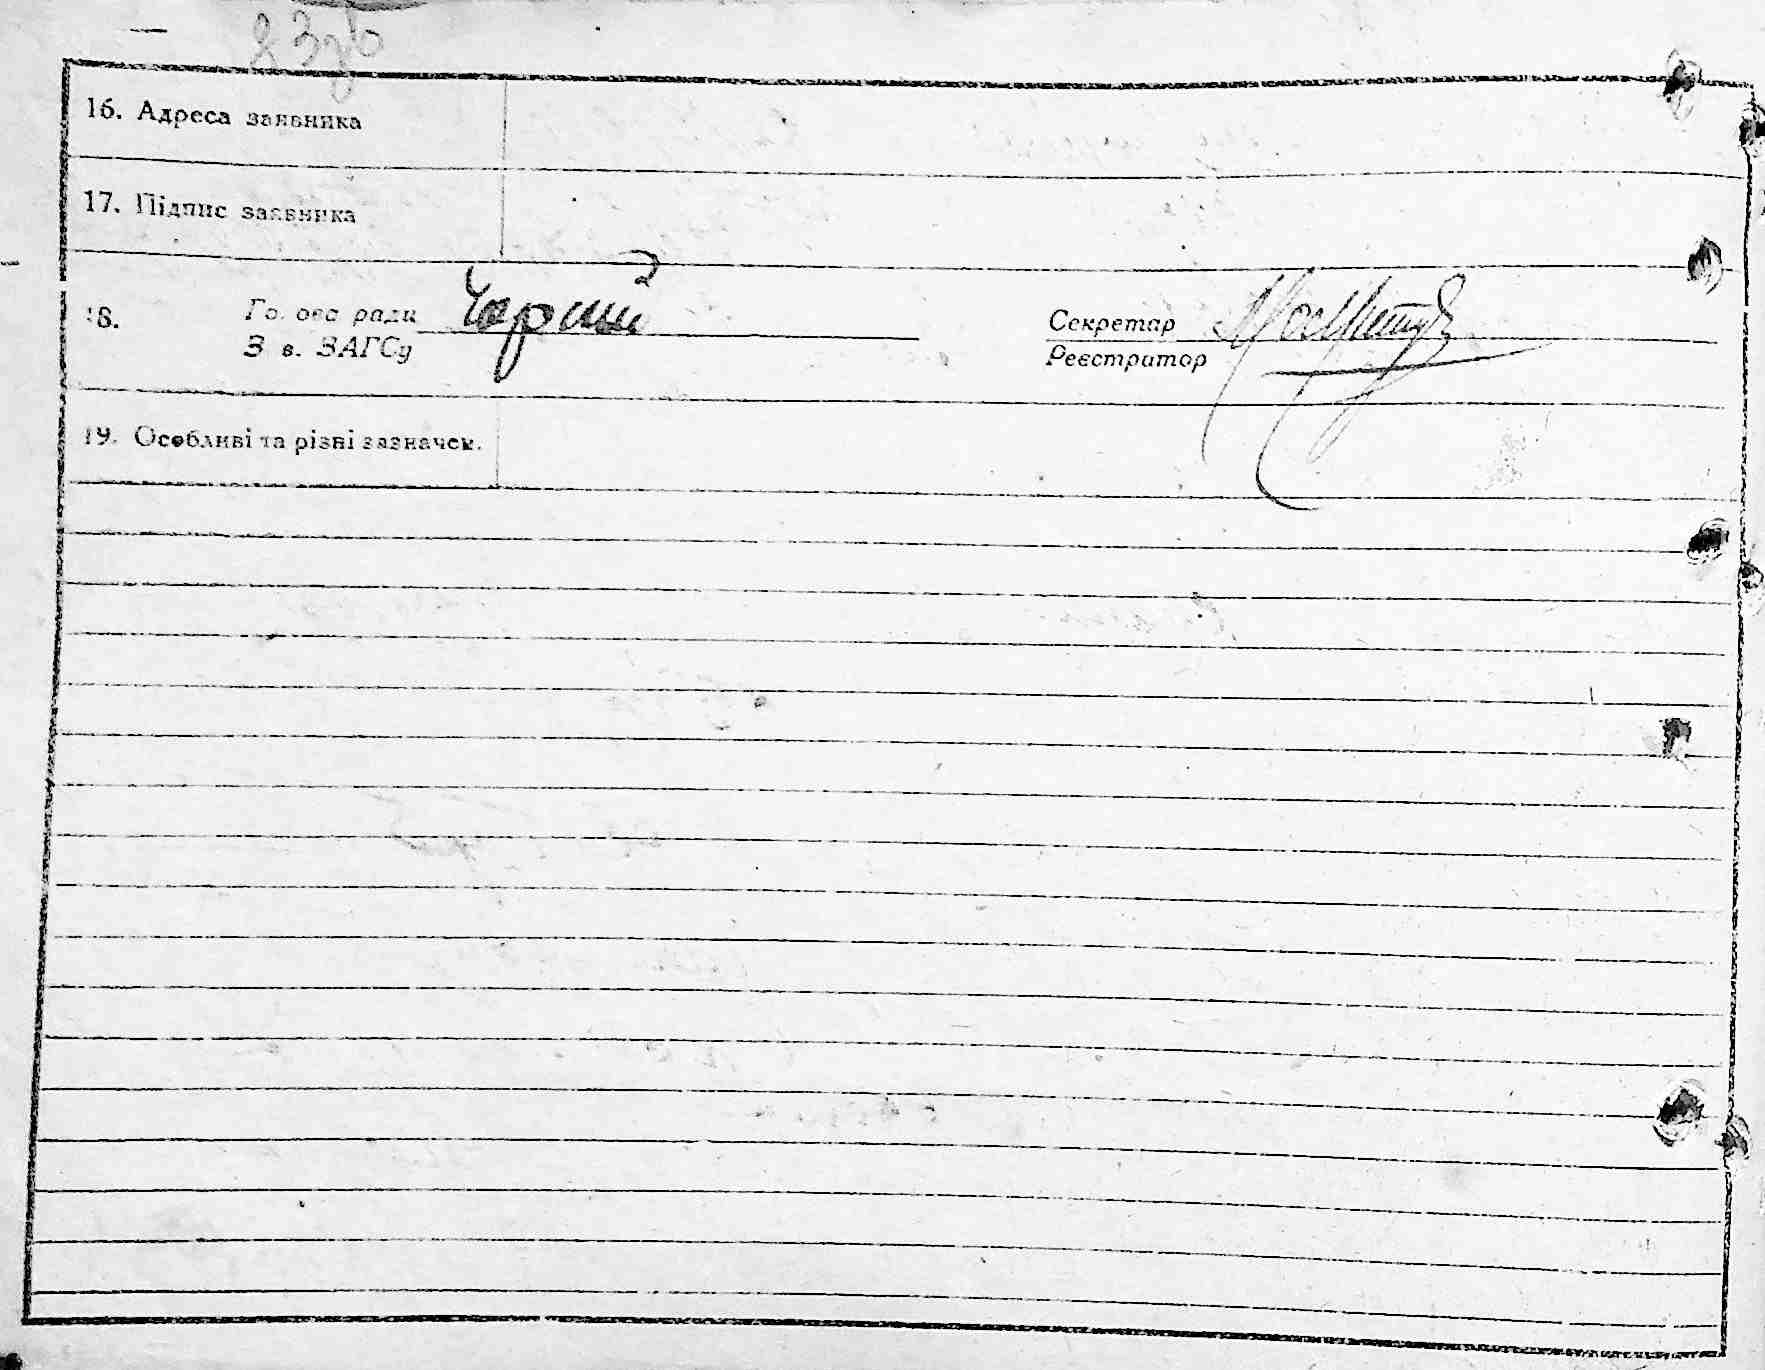 23зв
16. Адреса заявника
17. Підпис заявника
18. Голова ради Чорний Секретар
Зав. ЗАГСу Реєстратор
19. Особливі та різні зазначен.